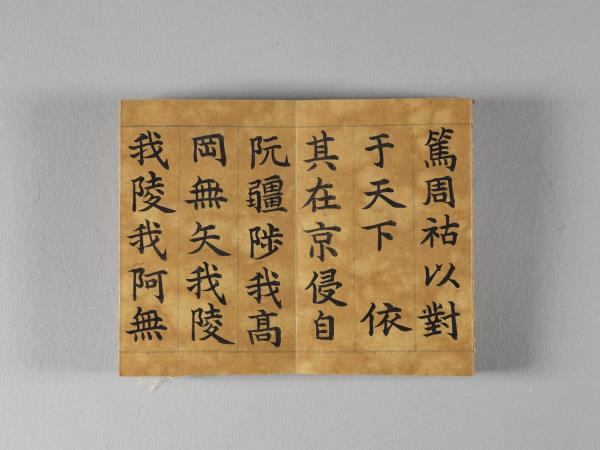 篤周祜以對
于天下　依
其在京侵自
阮疆陟我高
岡無矢我陵
我陵我阿無